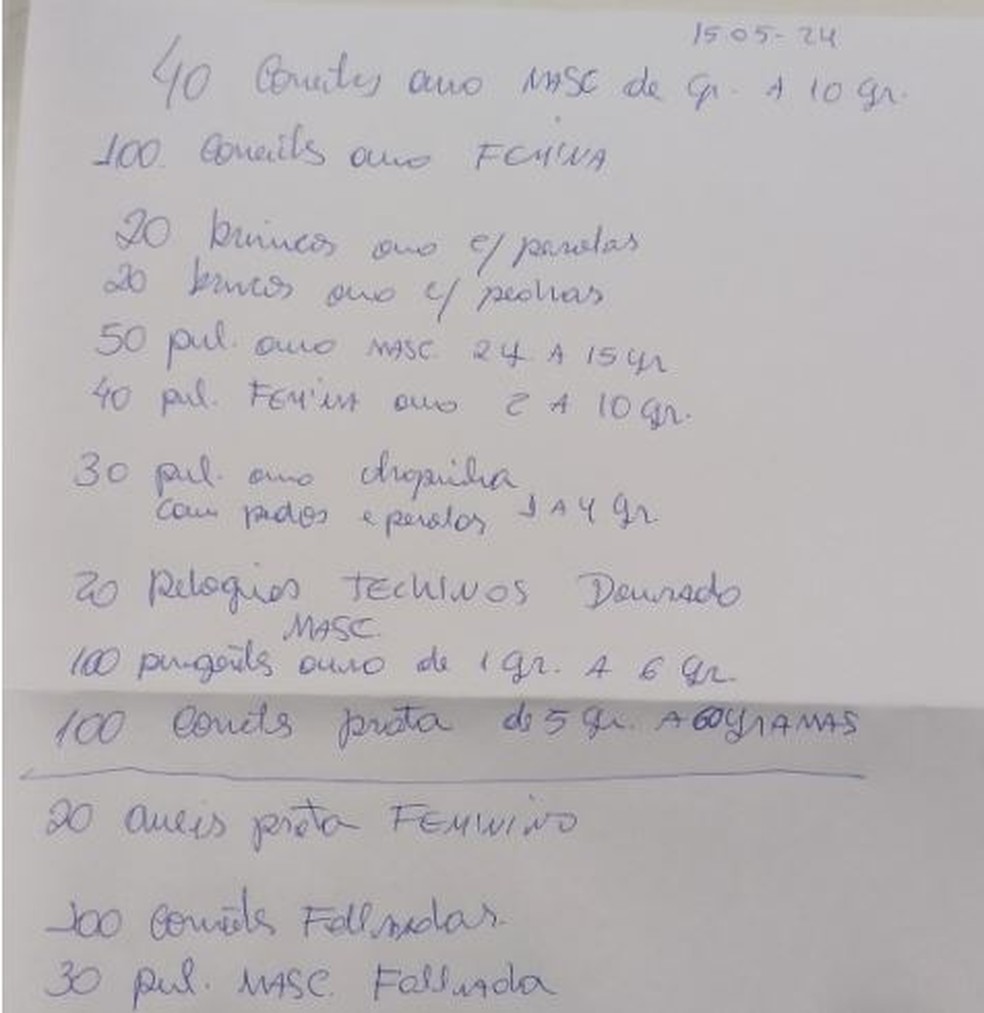 15 05-24
40 Correntes ouro MASC de gr. A 10 gr.
100 Correntes ouro FEMINA
20 brincos ouro c/ perolas
20 brincos ouro c/ pedras
50 pul. ouro MASC. 24 A 15 gr
40 pul. FEMINA ouro 2 A 10 gr.
30 pul. ouro chapinha
com pedras e perolas 1 A 4 gr
20 Relogios TECHINOS Dourado
MASC.
100 pingentes ouro de 1 gr. A 6 gr.
100 Correntes prata de 5 gr. A 60 GRAMAS
20 aneis prata FEMININO
Correntes Folheadas.
30 pul. MASC. Folheada